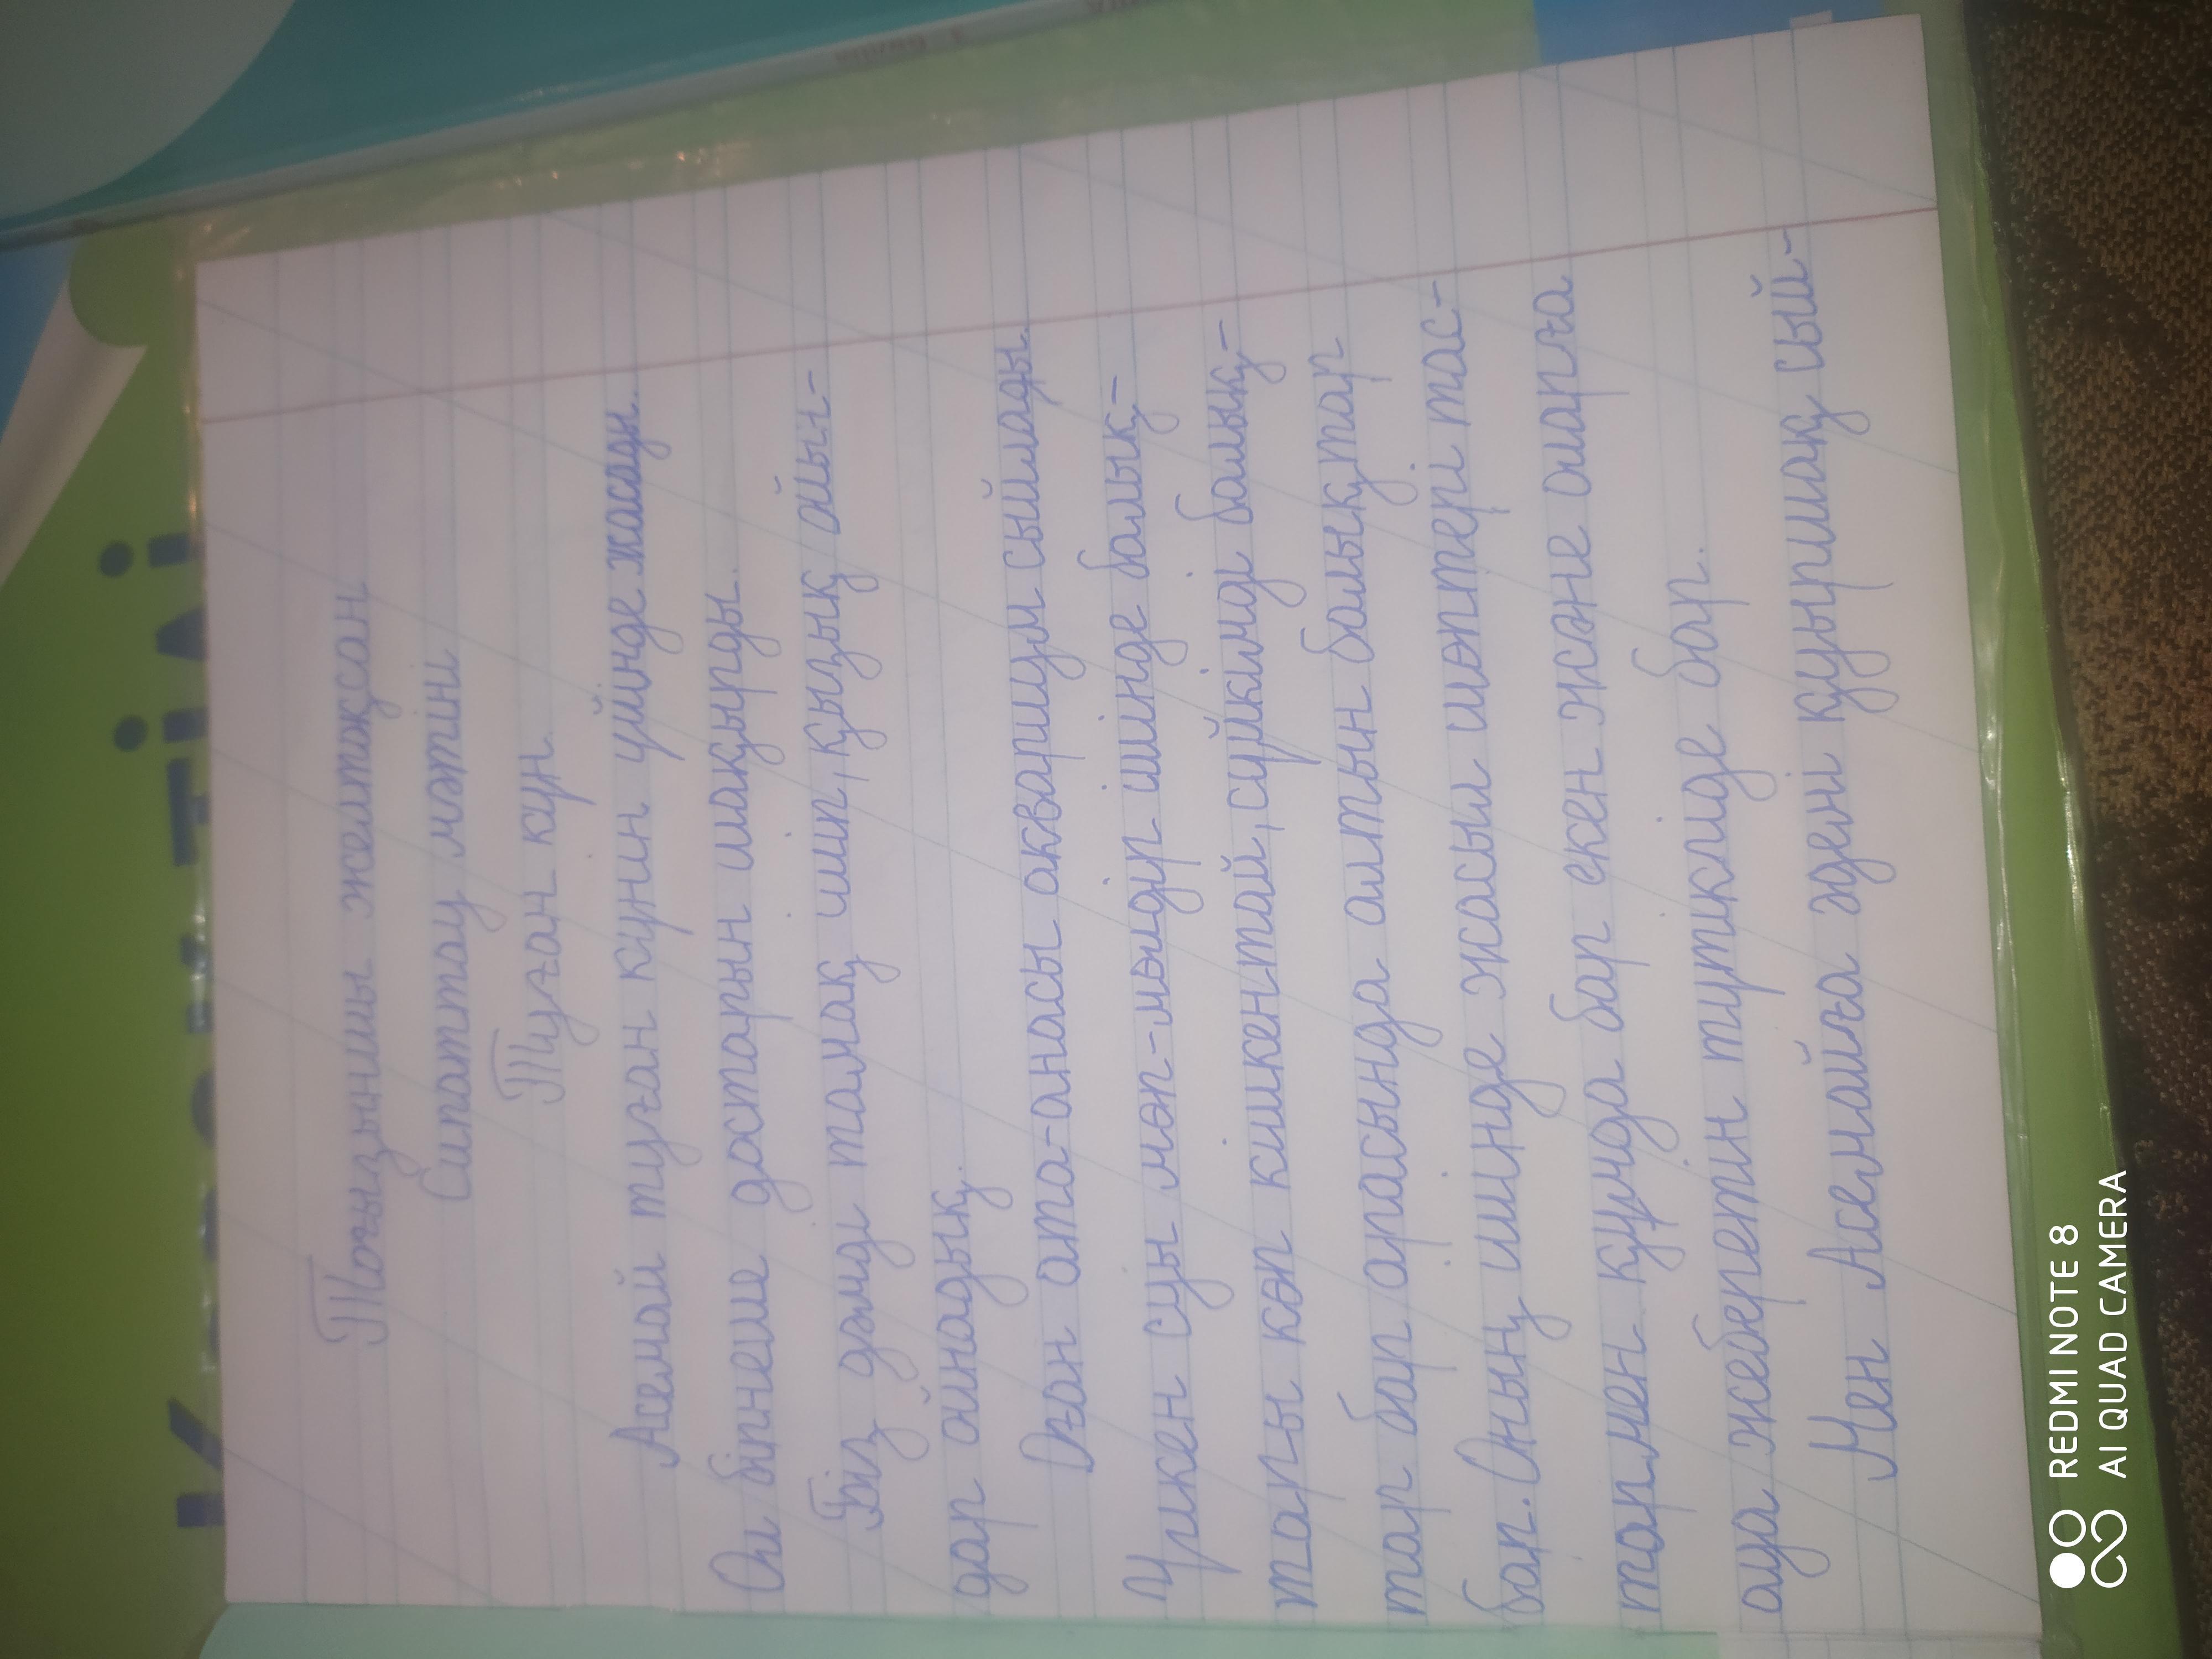 Тоғызыншы желтоқсан
Сипаттау мәтіні
Туған күн.
Асемай туған күнін үйінде жасады.
Ол бірнеше достарын шақырды.
Біз дәмді тамақ ішіп, қызық ойын-
дар ойнадық.
Оған ата-анасы аквариум сыйлады.
Үлкен суы мөп-мөлдір ішінде балық-
тары көп кішкентай, сүйкімді балық-
тар бар арасында алтын балықтар
бар. Оның ішінде жасыл шөптері тас-
тармен құмда бар екен және оларға
ауа жеберетін түтікліде бар.
Мен Асемайға әдемі қуыршақ сый-
REDMI NOTE 8
AI QUAD CAMERA